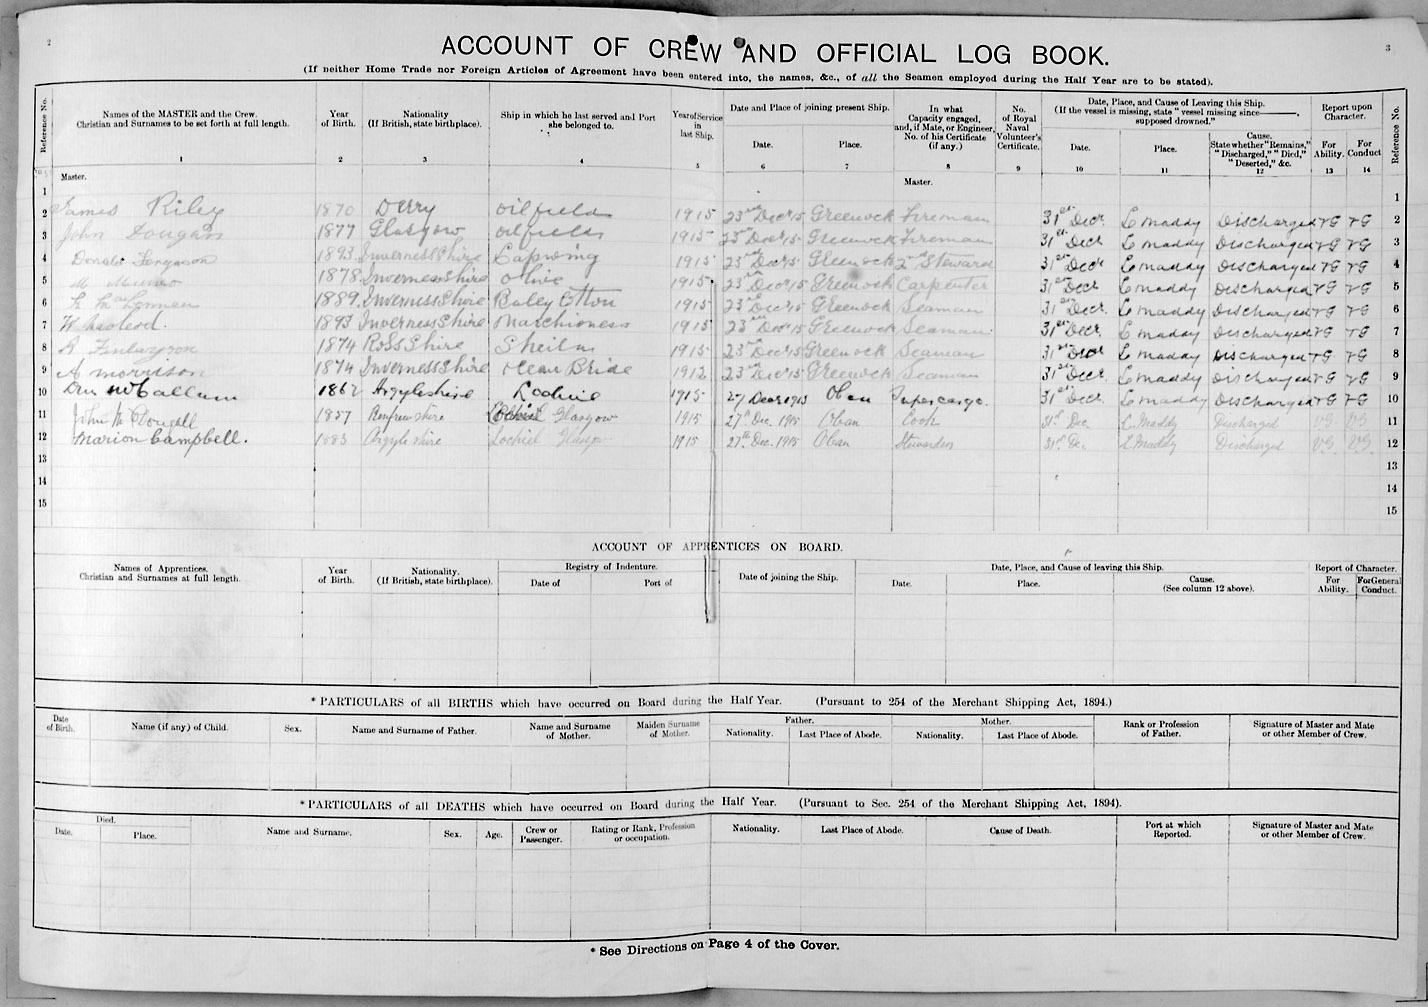 2
3
ACCOUNT OF CREW AND OFFICIAL LOG BOOK.
(If neither Home Trade nor Foreign Articles of Agreement have been entered into, the names, &c., of all the Seamen employed during the Half Year are to be stated).
Reference No. Names of the MASTER and the Crew. Christian and Surnames to be set forth at full length. Year of Birth. Nationality (If British, state birthplace). Ship in which he last served and Port she belonged to. Year of Service in last Ship. Date and Place of joining present Ship. Date. Place. In what Capacity engaged, and, if Mate, or Engineer, No. of his Certificate (if any). No. of Royal Naval Volunteer's Certificate. Date, Place, and Cause of Leaving this Ship. (If the vessel is missing, state "vessel missing since———, supposed drowned.") Date. Place. Cause. State whether "Remains," "Discharged," "Died," "Deserted," &c. Report upon Character. For Ability. For Conduct Reference No.
1 2 3 4 5 6 7 8 9 10 11 12 13 14
Master. Master.
1 1
2 James Riley 1870 Derry Oilfield 1915 23rd Decr 15 Greenock Fireman 31st Decr L Maddy Discharged VG VG 2
3 John Dougan 1877 Glasgow Oilfields 1915 23rd Decr 15 Greenock Fireman 31st Decr L Maddy Discharged VG VG 3
4 Donald Ferguson 1893 Inverness Shire Lapwing 1915 23rd Decr 15 Greenock 2nd Steward 31st Decr L Maddy Discharged VG VG 4
5 M Munro 1878 Inverness Shire Olive 1915 23rd Decr 15 Greenock Carpenter 31st Decr L Maddy Discharged VG VG 5
6 1889 Inverness Shire 1915 23rd Decr 15 Greenock Seaman 31st Decr L Maddy Discharged VG VG 6
7 W Macleod. 1893 Inverness Shire Marchioness 1915 23rd Decr 15 Greenock Seaman. 31st Decr L Maddy Discharged VG VG 7
8 A Finlayson 1874 Ross Shire Sheila 1915 23rd Decr 15 Greenock Seaman 31st Decr L Maddy Discharged VG VG 8
9 A Morrison 1874 Inverness Shire Ocean Bride 1912 23rd Decr 15 Greenock Seaman 31st Decr L Maddy Discharged VG VG 9
10 Dun McCallum 1862 Argyleshire Lochiel 1915 27 Decr 1915 Oban Supercargo. 31st Decr L Maddy Discharged VG VG 10
11 John McDougall 1857 Renfrewshire Lochiel Glasgow 1915 27th Dec. 1915 Oban Cook 31st Dec L. Maddy Discharged VG VG 11
12 Marion Campbell. 1883 Argyleshire Lochiel Glasgow 1915 27th Dec. 1915 Oban Stewardess 31st De. L Maddy Discharged VG. VG. 12
13 13
14 14
15 15
ACCOUNT OF APPRENTICES ON BOARD.
Names of Apprentices. Christian and Surnames at full length. Year of Birth. Nationality. (If British, state birthplace). Registry of Indenture. Date of Port of Date of joining the Ship. Date, Place, and Cause of leaving this Ship. Date. Place. Cause. (See column 12 above). Report of Character. For Ability. For General Conduct.
* PARTICULARS of all BIRTHS which have occurred on Board during the Half Year. (Pursuant to 254 of the Merchant Shipping Act, 1894.)
Date of Birth. Name (if any) of Child. Sex. Name and Surname of Father. Name and Surname of Mother. Maiden Surname of Mother. Father. Nationality. Last Place of Abode. Mother. Nationality. Last Place of Abode. Rank or Profession of Father. Signature of Master and Mate or other Member of Crew.
* PARTICULARS of all DEATHS which have occurred on Board during the Half Year. (Pursuant to Sec. 254 of the Merchant Shipping Act, 1894).
Died. Date. Place. Name and Surname. Sex. Age. Crew or Passenger. Rating or Rank, Profession or occupation. Nationality. Last Place of Abode. Cause of Death. Port at which Reported. Signature of Master and Mate or other Member of Crew.
* See Directions on Page 4 of the Cover.